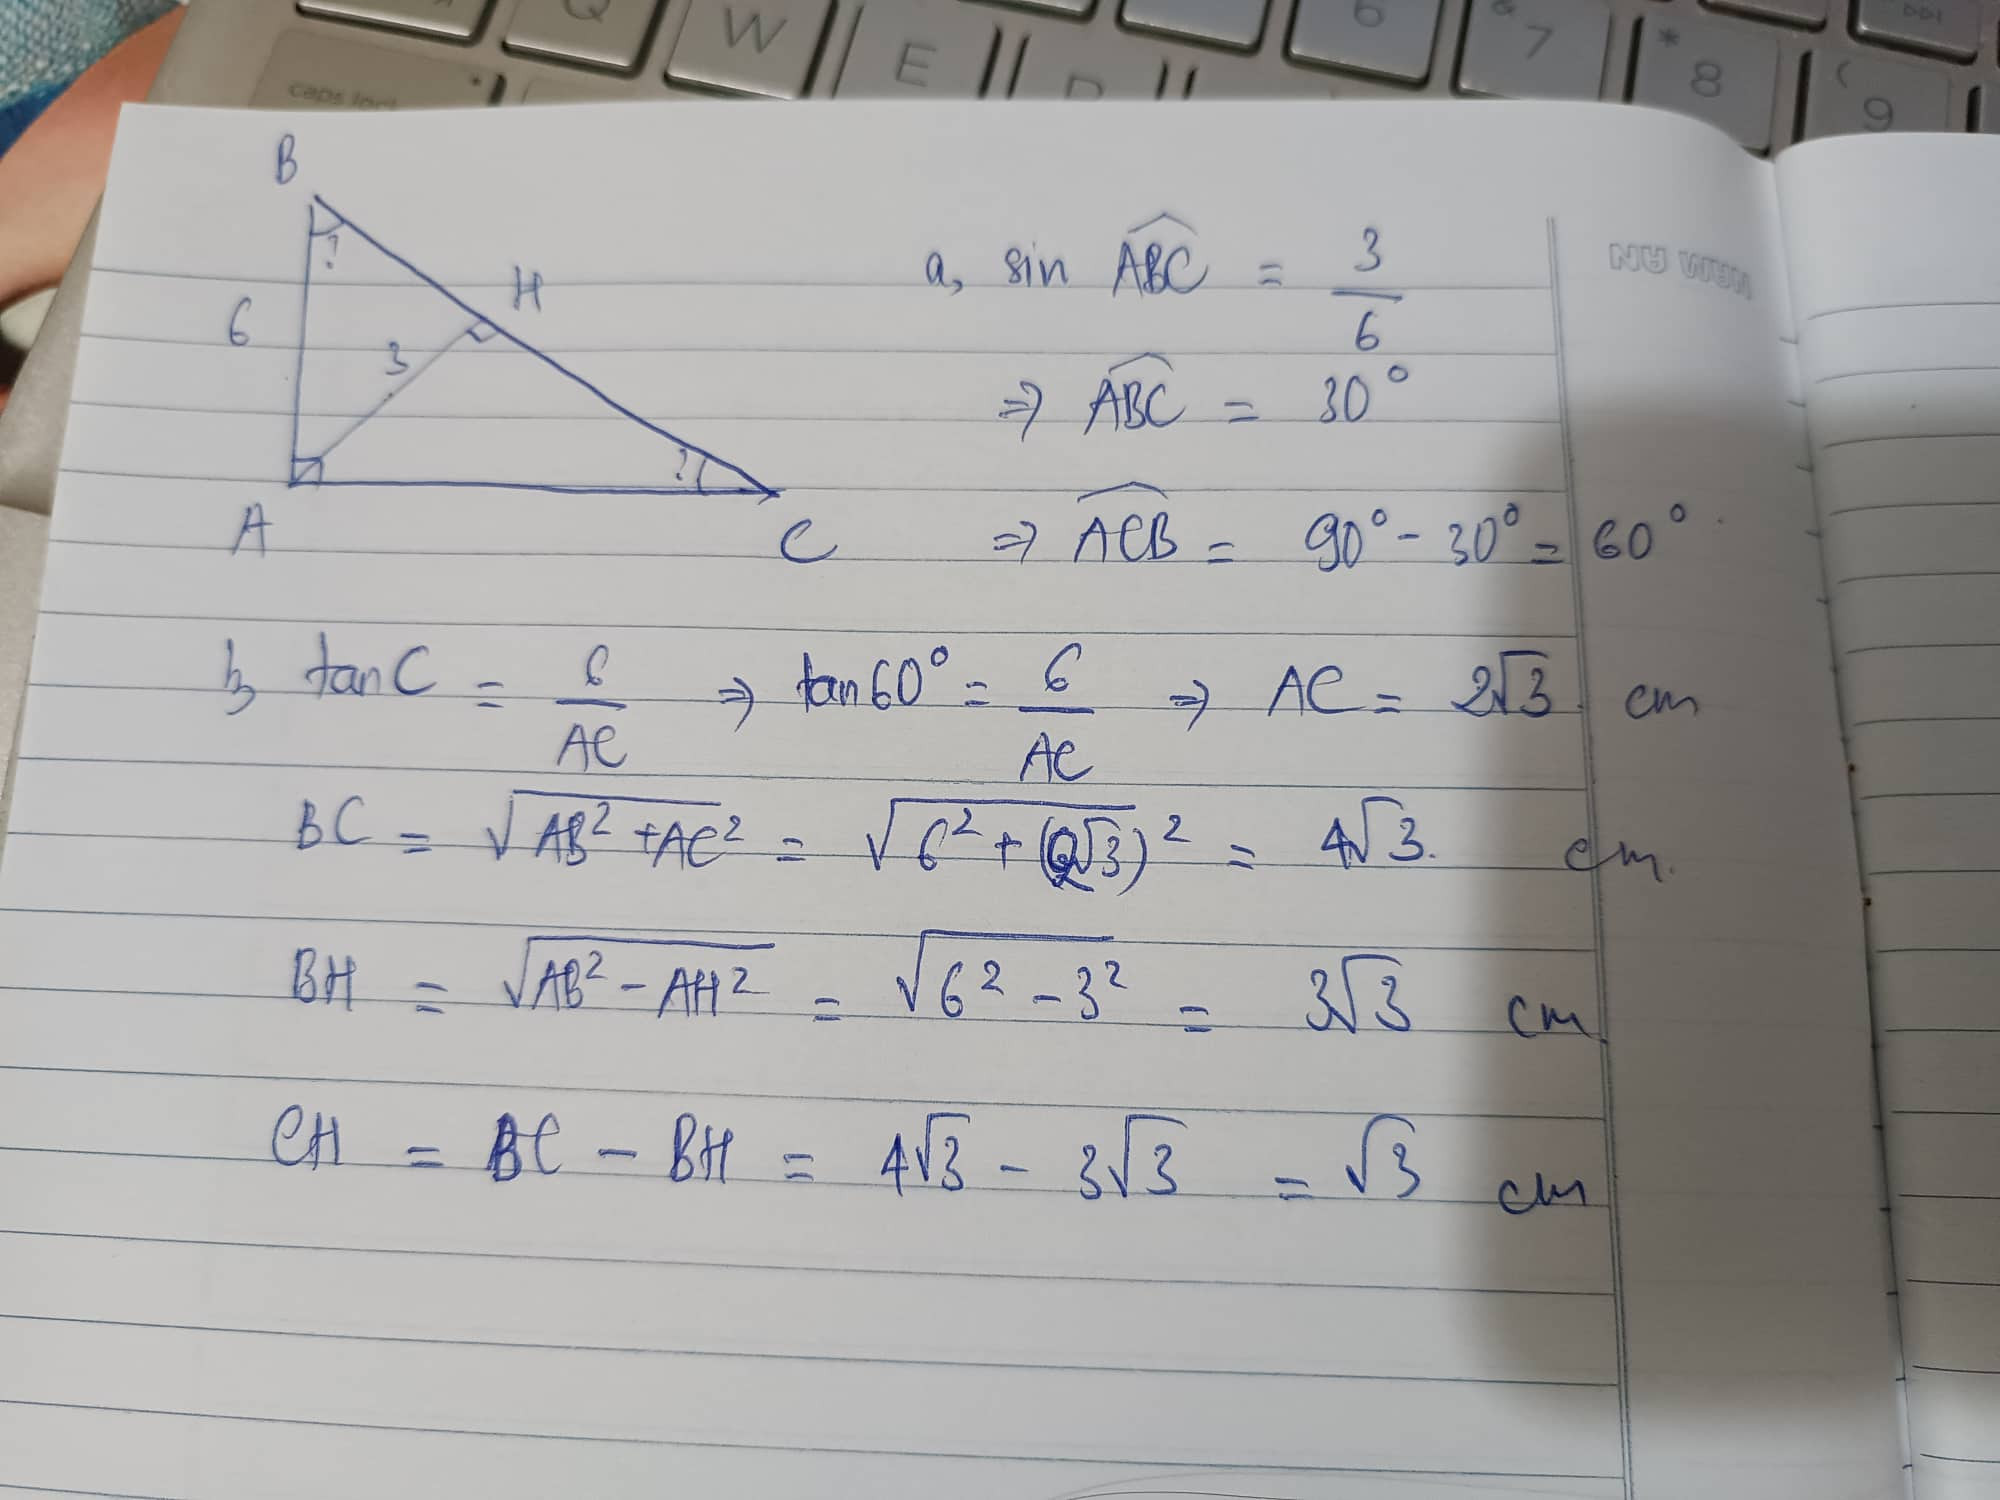 Q W E 6 & 7 * 8 ( 9
caps lock
B
?
H
6
3
?
A
C
a, sin ABC = 3/6
⇒ ABC = 30°
⇒ ACB = 90° - 30° = 60°
b, tan C = 6/AC ⇒ tan 60° = 6/AC ⇒ AC = 2√3 cm
BC = √AB² + AC² = √6² + (2√3)² = 4√3. cm.
BH = √AB² - AH² = √6² - 3² = 3√3 cm
CH = BC - BH = 4√3 - 3√3 = √3 cm